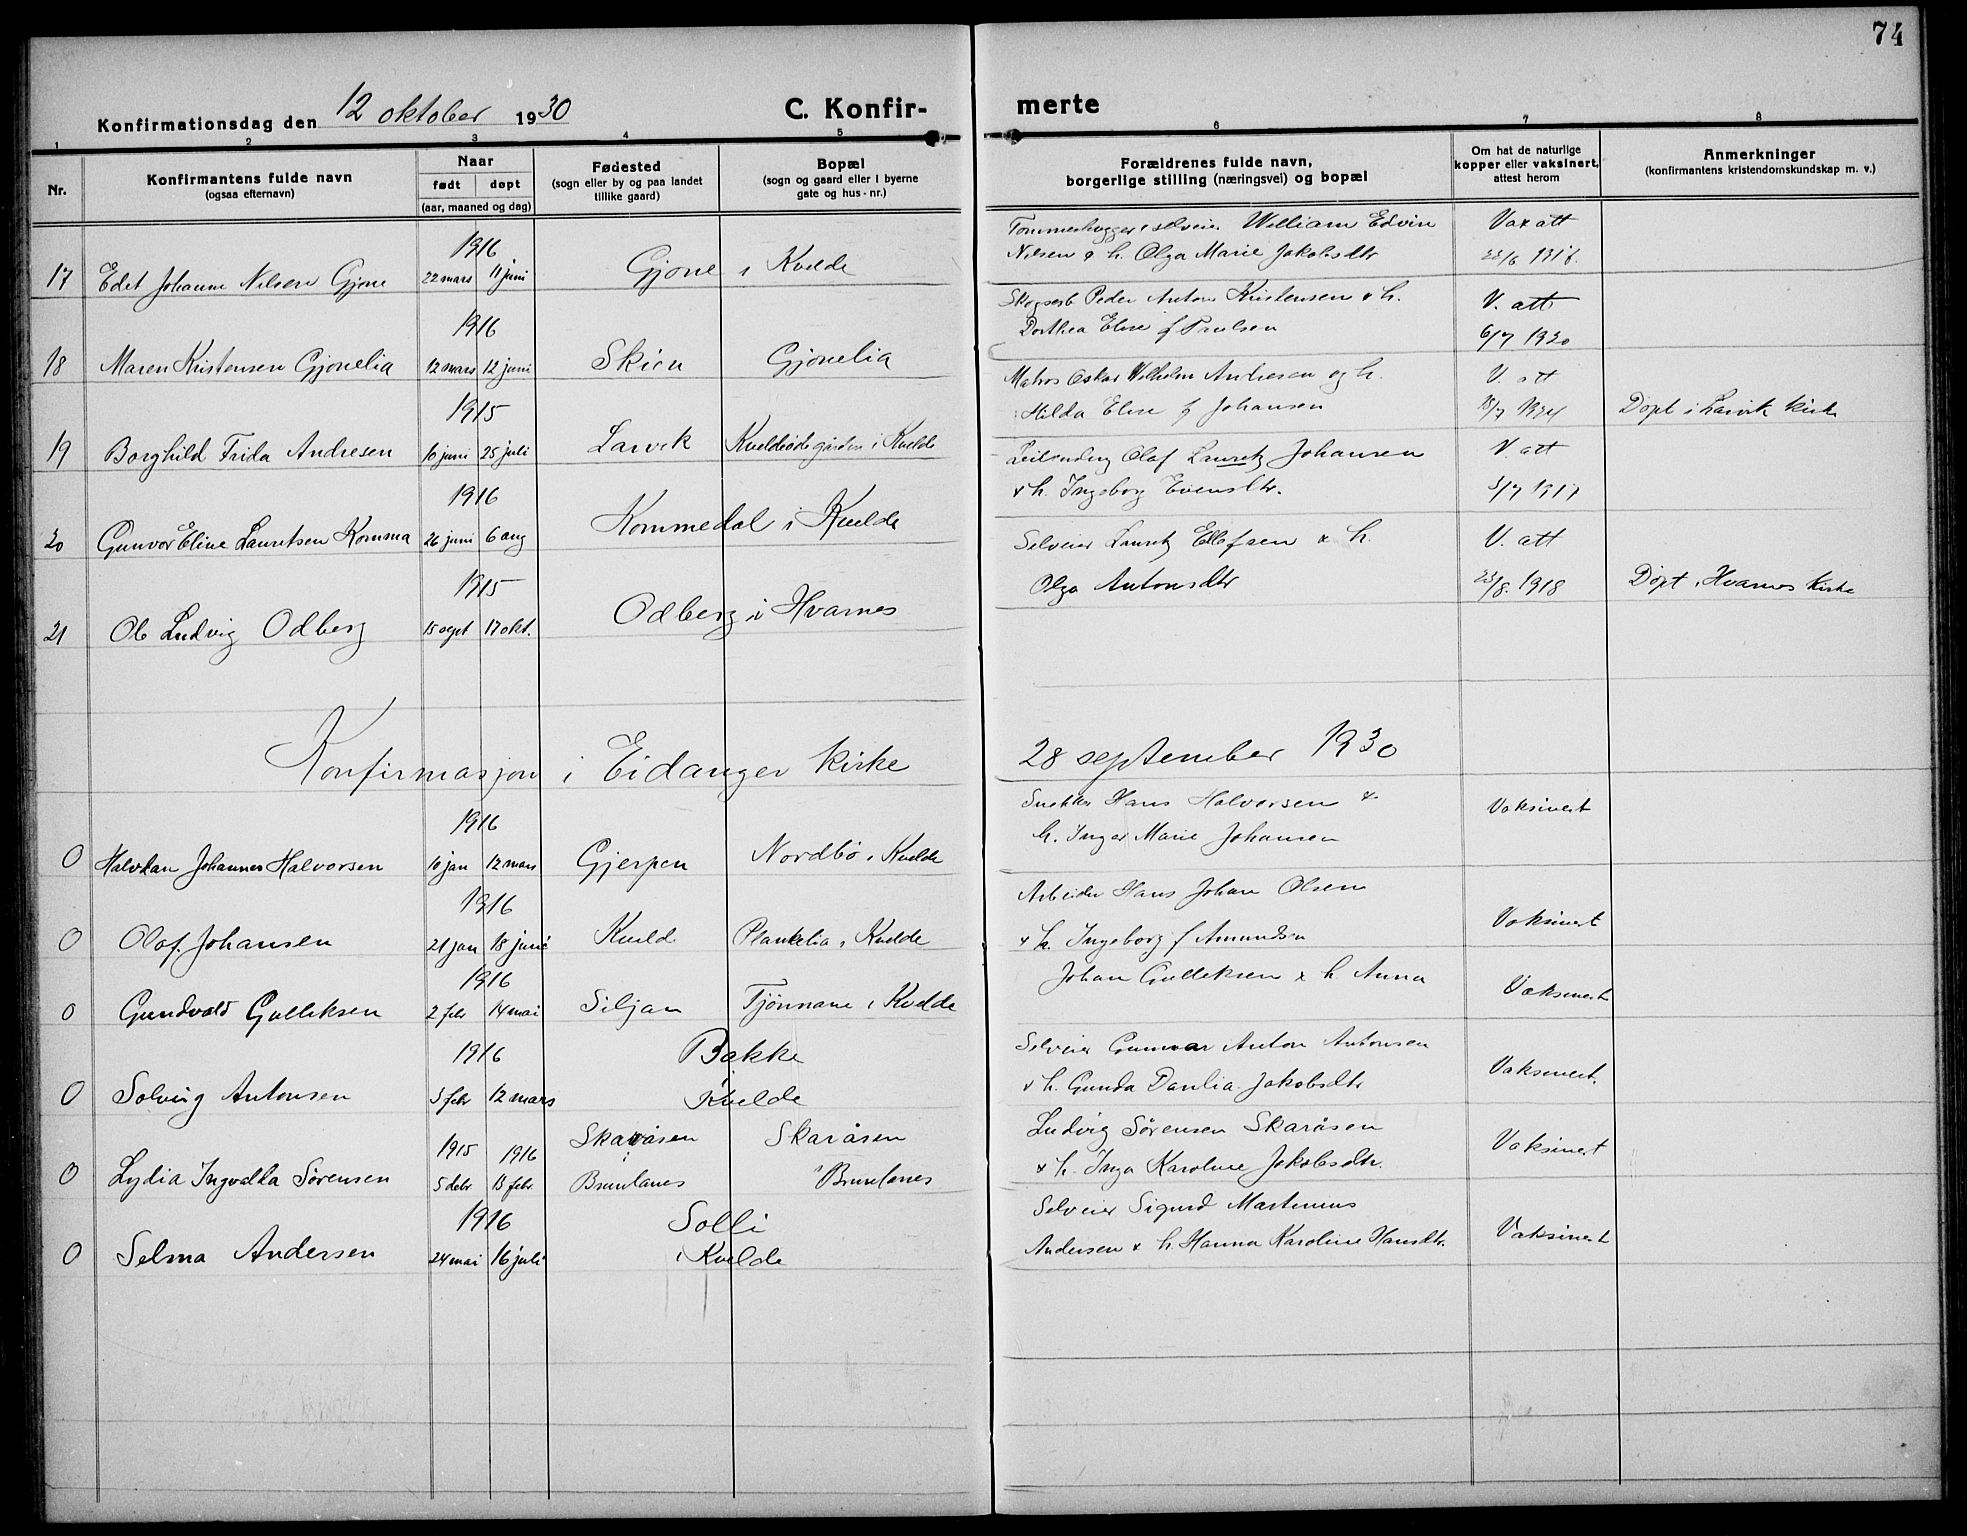 74
Konfirmationsdag den 12 oktober 1930
C. Konfir-
merte
1 2 3 4 5 6 7 8
Nr.
Konfirmantens fulde navn
(ogsaa efternavn)
Naar
født døpt
(aar, maaned og dag)
Fødested
(sogn eller by og paa landet
tillike gaard)
Bopæl
(sogn og gaard eller i byerne
gate og hus-nr.)
Forældrenes fulde navn,
borgerlige stilling (næringsvei) og bopæl
Om hat de naturlige
kopper eller vaksinert,
attest herom
Anmerkninger
(konfirmantens kristendomskundskap m. v.)
1916
17 Edet Johanne Nilsen Gjone 22 mars 11 juni Gjone i Kvelde
Tømmerhugger, selveier William Edvin
Nilsen & h. Olga Marie Jakobsdtr
Vax att
1916
18 Maren Kristensen Gjonelia 12 mars 12 juni Skien Gjonelia
Peder Anton Kristensen & h.
Dorthea Elise f Paulsen
V. att
6/7 1920
1915
19 Borghild Frida Andresen 10 juni 25 juli Larvik Kvelde
Matros Oskar Wilhelm Andresen og h.
Hilda Elise f Johansen
V. att
Døpt i Larvik kirke
1916
20 Gunvor Eline Lauritsen Komma 26 juni 6 aug Kommedal i Kvelde
Olaf Lauritz Johansen
& h. Ingeborg Evensdtr.
V att
5/7 1917
1915
21 Ole Ludvig Odberg 15 sept 17 okt. Odberg i Hvarnes
Selveier Lauritz Ellefsen & h.
Olga Antonsdtr
V. att
23/8. 1918
Døpt i Hvarnes Kirke
Konfirmasjon i Eidanger Kirke
28 september 1930
1916
0 Halvdan Johannes Halvorsen 10 jan 12 mars Gjerpen Nordbø i Kvelde
Snekker Hans Halvorsen &
h. Inger Marie Johansen
Vaksinert
1916
0 Olaf Johansen 21 jan 18 juni Kveld Plankelia i Kvelde
Arbeider Hans Johan Olsen
& h. Ingeborg f Amundsen
Vaksinert
1916
0 Gundvald Gulliksen 2 febr 14 mai Siljan Tjönnane i Kvelde
Johan Gulliksen & h Anna
Vaksinert
1916
0 Solveig Antonsen 5 febr 12 mars Bakke
i Kvelde
Selveier Gunnar Anton Antonsen
& h. Gunda Danlia Jakobsdtr
Vaksinert.
1915 1916
0 Lydia Ingvalda Sørensen 5 debr 13 febr Skaråsen Skaråsen
i Brunlanes i Brunlanes
Ludvig Sørensen Skaråsen
& h. Inga Karoline Jakobsdtr.
Vaksinert
1916
0 Selma Andersen 24 mai 16 juli Solli
i Kvelde
Selveier Sigurd Martinius
Andersen & h. Hanna Karoline Hansdtr.
Vaksinert